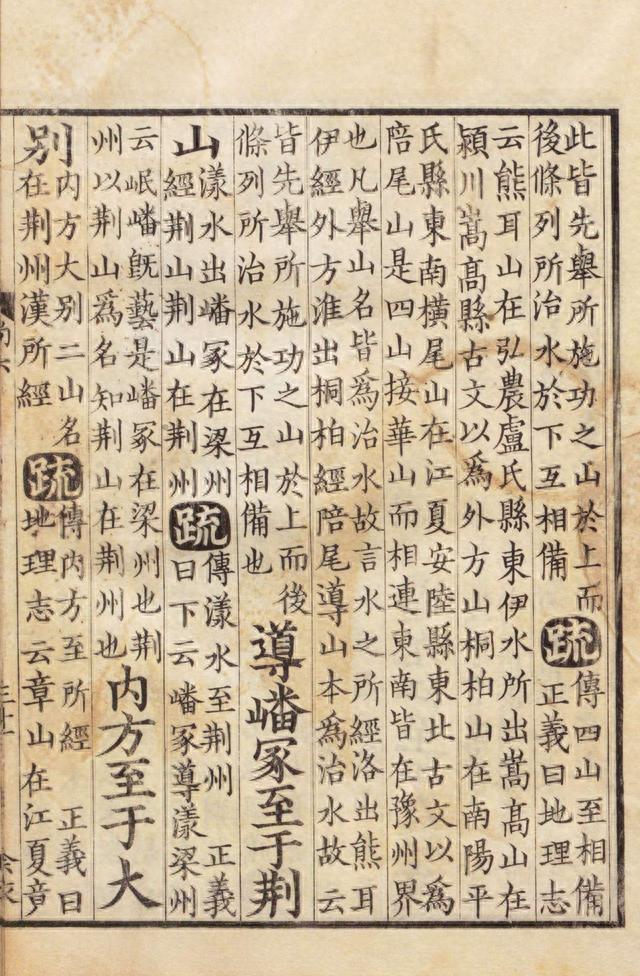 此皆先舉所施功之山於上而
後條列所治水於下互相備
疏
傳四山至相備
正義曰地理志
云熊耳山在弘農盧氏縣東伊水所出嵩高山在
潁川嵩高縣古文以爲外方山桐柏山在南陽平
氏縣東南橫尾山在江夏安陸縣東北古文以爲
陪尾山是四山接華山而相連東南皆在豫州界
也凡舉山名皆爲治水故言水之所經洛出熊耳
伊經外方淮出桐柏經陪尾導山本爲治水故云
皆先舉所施功之山於上而後
條列所治水於下互相備也
導嶓冢至于荆
山
漾水出嶓冢在梁州
經荆山荆山在荆州
疏
傳漾水至荆州 正義
曰下云嶓冢導漾梁州
云岷嶓旣藝是嶓冢在梁州也荆
州以荆山爲名知荆山在荆州也
內方至于大
别
內方大别二山名
在荆州漢所經
疏
傳內方至所經 正義曰
地理志云章山在江夏竟